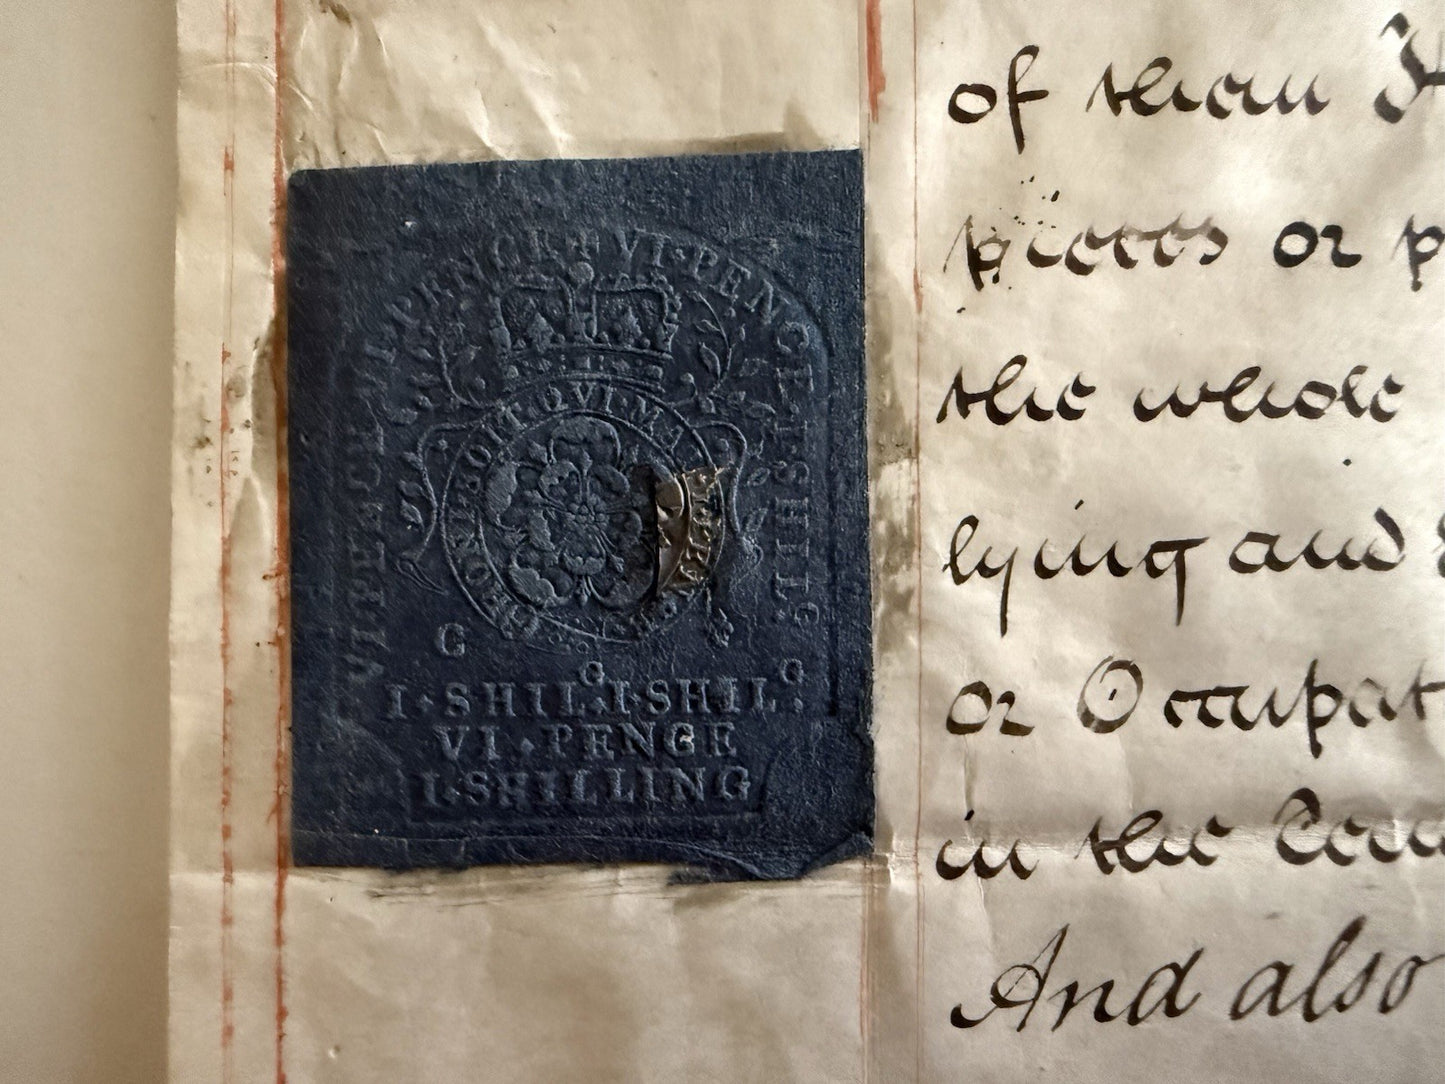 VI·PENCE
VI·PENCE
VI·PENCE·I·SHIL
HONI·SOIT·QVI·MA
G
G
G
I·SHIL·I·SHIL·
VI·PENCE
I·SHILLING
of them
pieces or p
the whole
lying and
or Occupat
in the
And also